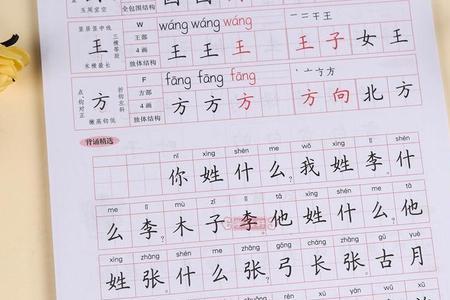 五周宽窄 全包围结构
wáng wáng wáng
竖居竖中线 W 一二干王
王 三横等距 王部 王 王 王 王 子 女 王
4画
末横最长 独体结构
fāng fāng fāng
F 丶亠方方
方 方部 方 方 方 方 向 北 方
4画
独体结构
背诵精选
nǐ xìng shén me wǒ xìng lǐ shén
你 姓 什 么 我 姓 李 什
me lǐ mù zǐ lǐ tā xìng shén me tā
么 李 ? 木 子 李 他 姓 什 么 ? 他
xìng zhāng shén me zhāng gōng cháng zhāng gǔ yuè
姓 张 什 么 张 ? 弓 长 张 古 月